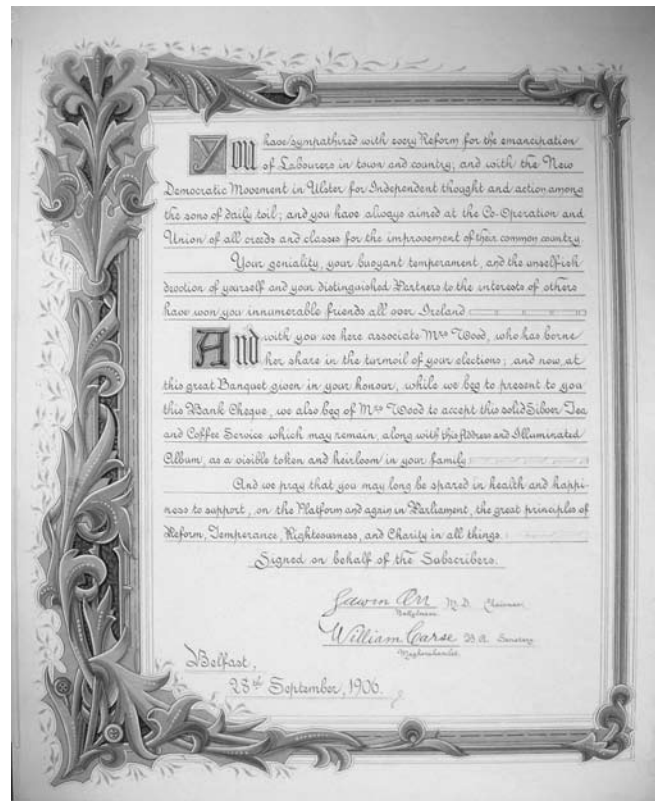 You have sympathized with every Reform for the emancipation
of Labourers in town and country; and with the New
Democratic Movement in Ulster for Independent thought and action among
the sons of daily toil; and you have always aimed at the Co-Operation and
Union of all creeds and classes for the improvement of their common country.
Your geniality, your buoyant temperament, and the unselfish
devotion of yourself and your distinguished Partners to the interests of others
have won you innumerable friends all over Ireland
And with you we here associate Mrs Wood, who has borne
her share in the turmoil of your elections; and now, at
this great Banquet given in your honour, while we beg to present to you
this Bank Cheque, we also beg of Mrs Wood to accept this solid Silver Tea
and Coffee Service which may remain, along with this Address and Illuminated
Album, as a visible token and heirloom in your family
And we pray that you may long be spared in health and happi-
ness to support, on the Platform and again in Parliament, the great principles of
Reform, Temperance, Righteousness, and Charity in all things.
Signed on behalf of the Subscribers.
Edwin Orr M.D. Chairman
William Carse B.A. Secretary
Magherahamlet.
Belfast,
28th September, 1906.